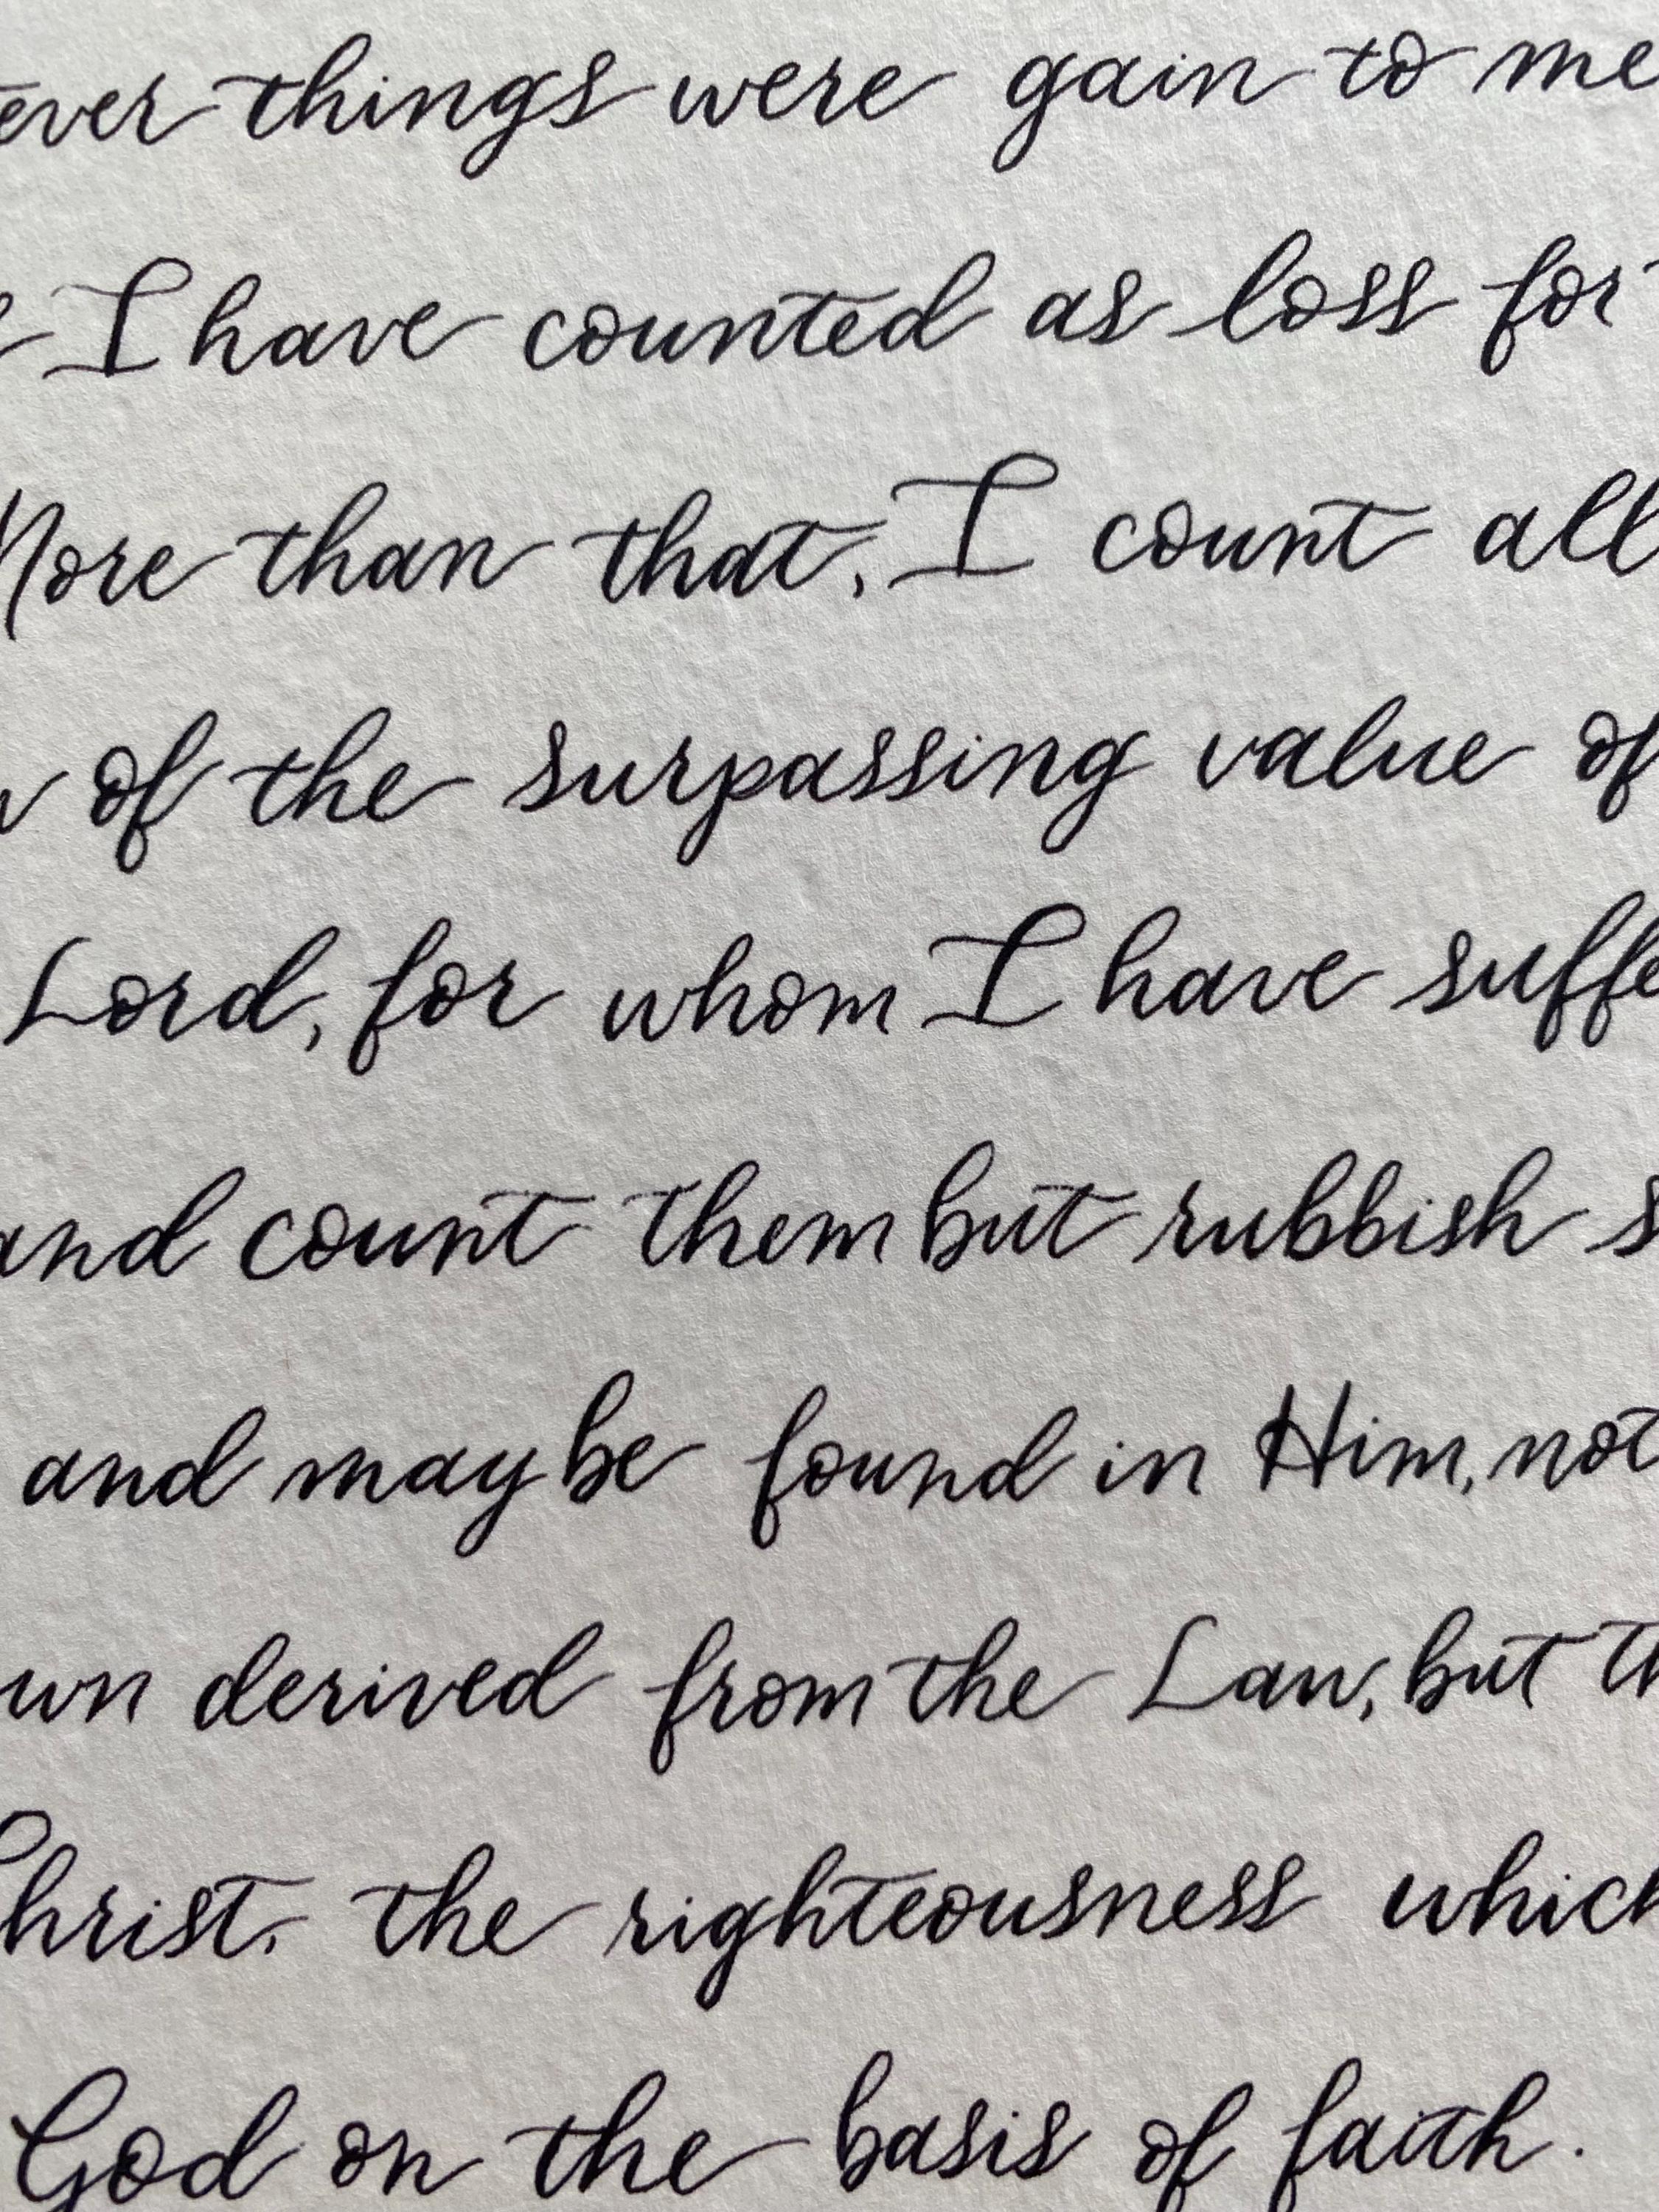 ever things were gain to me
I have counted as loss for
More than that, I count all
of the surpassing value of
Lord, for whom I have suffe
and count them but rubbish s
and may be found in Him, not
wn derived from the Law, but th
Christ, the righteousness which
God on the basis of faith.